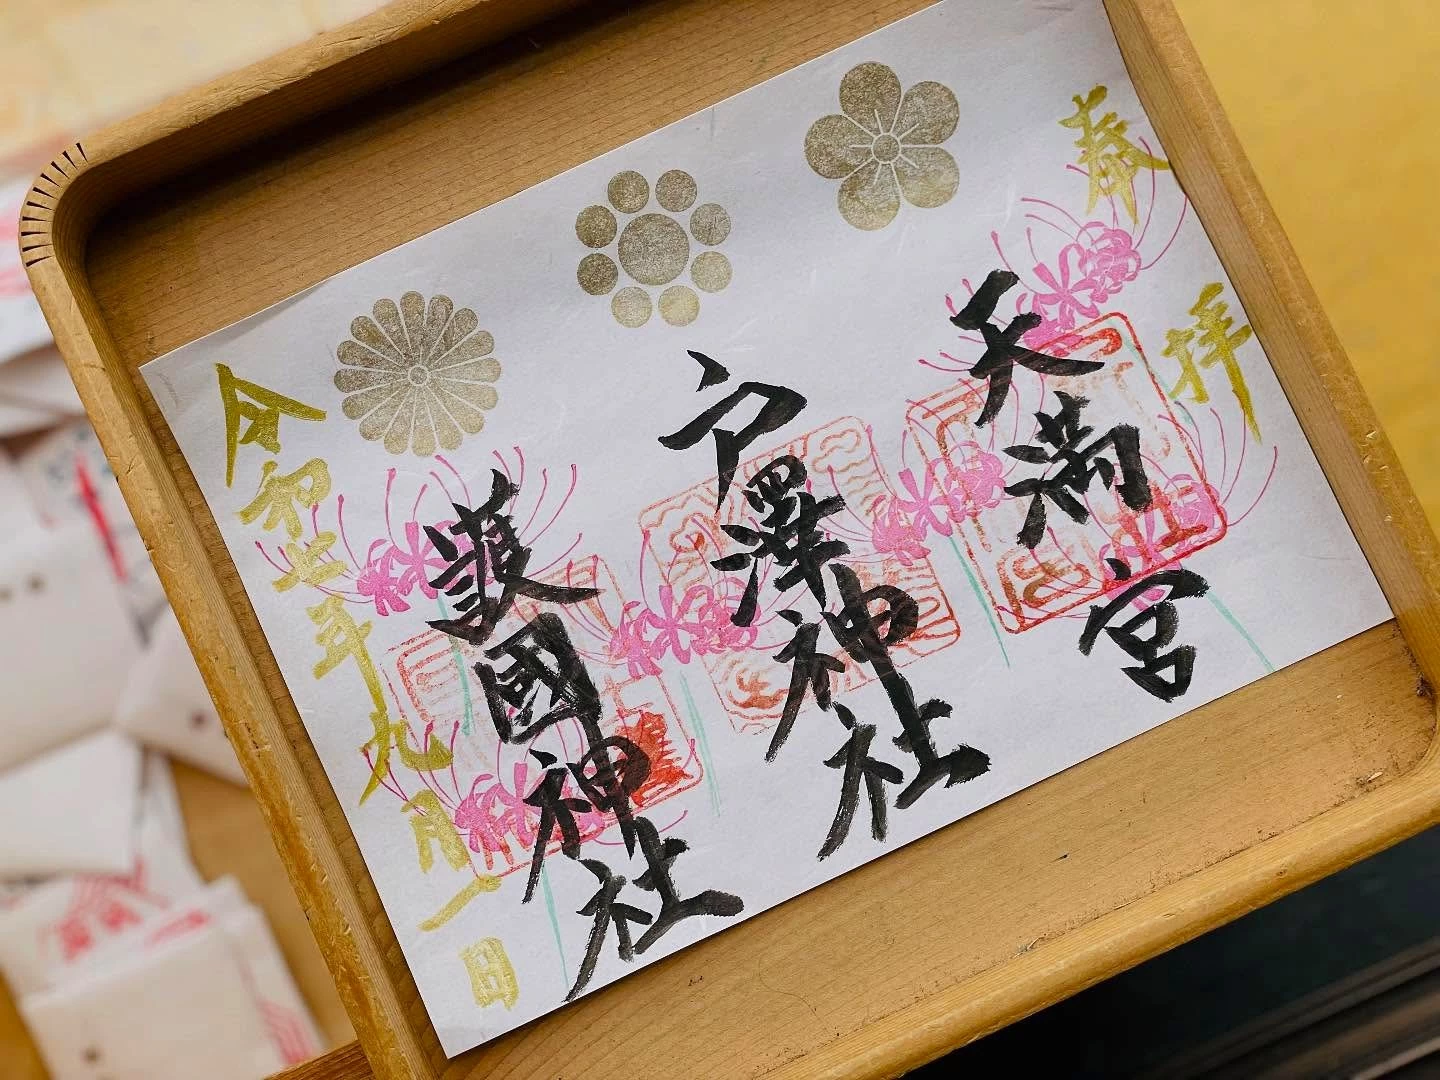 奉拝
天満宮
戸澤神社
護國神社
令和七年九月一日